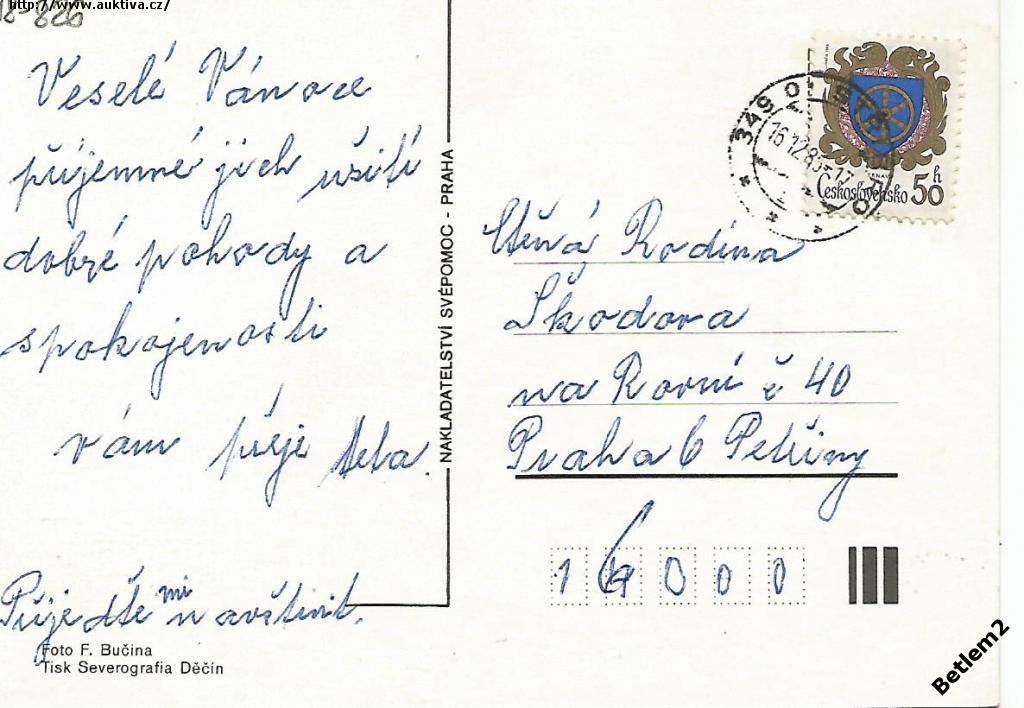 http://www.auktiva.cz/
18-826
Veselé Vánoce
příjemné jich užití
dobré pohody a
spokojenosti
vám přeje teta.
Přijeďte mi navštívit.
Foto F. Bučina
Tisk Severografia Děčín
NAKLADATELSTVÍ SVÉPOMOC - PRAHA
349 01
16.12.85-17
Československo 50 h
Ctěná Rodina
Škodova
na Rovní č 40
Praha 6 Petřiny
16000
Betlem2